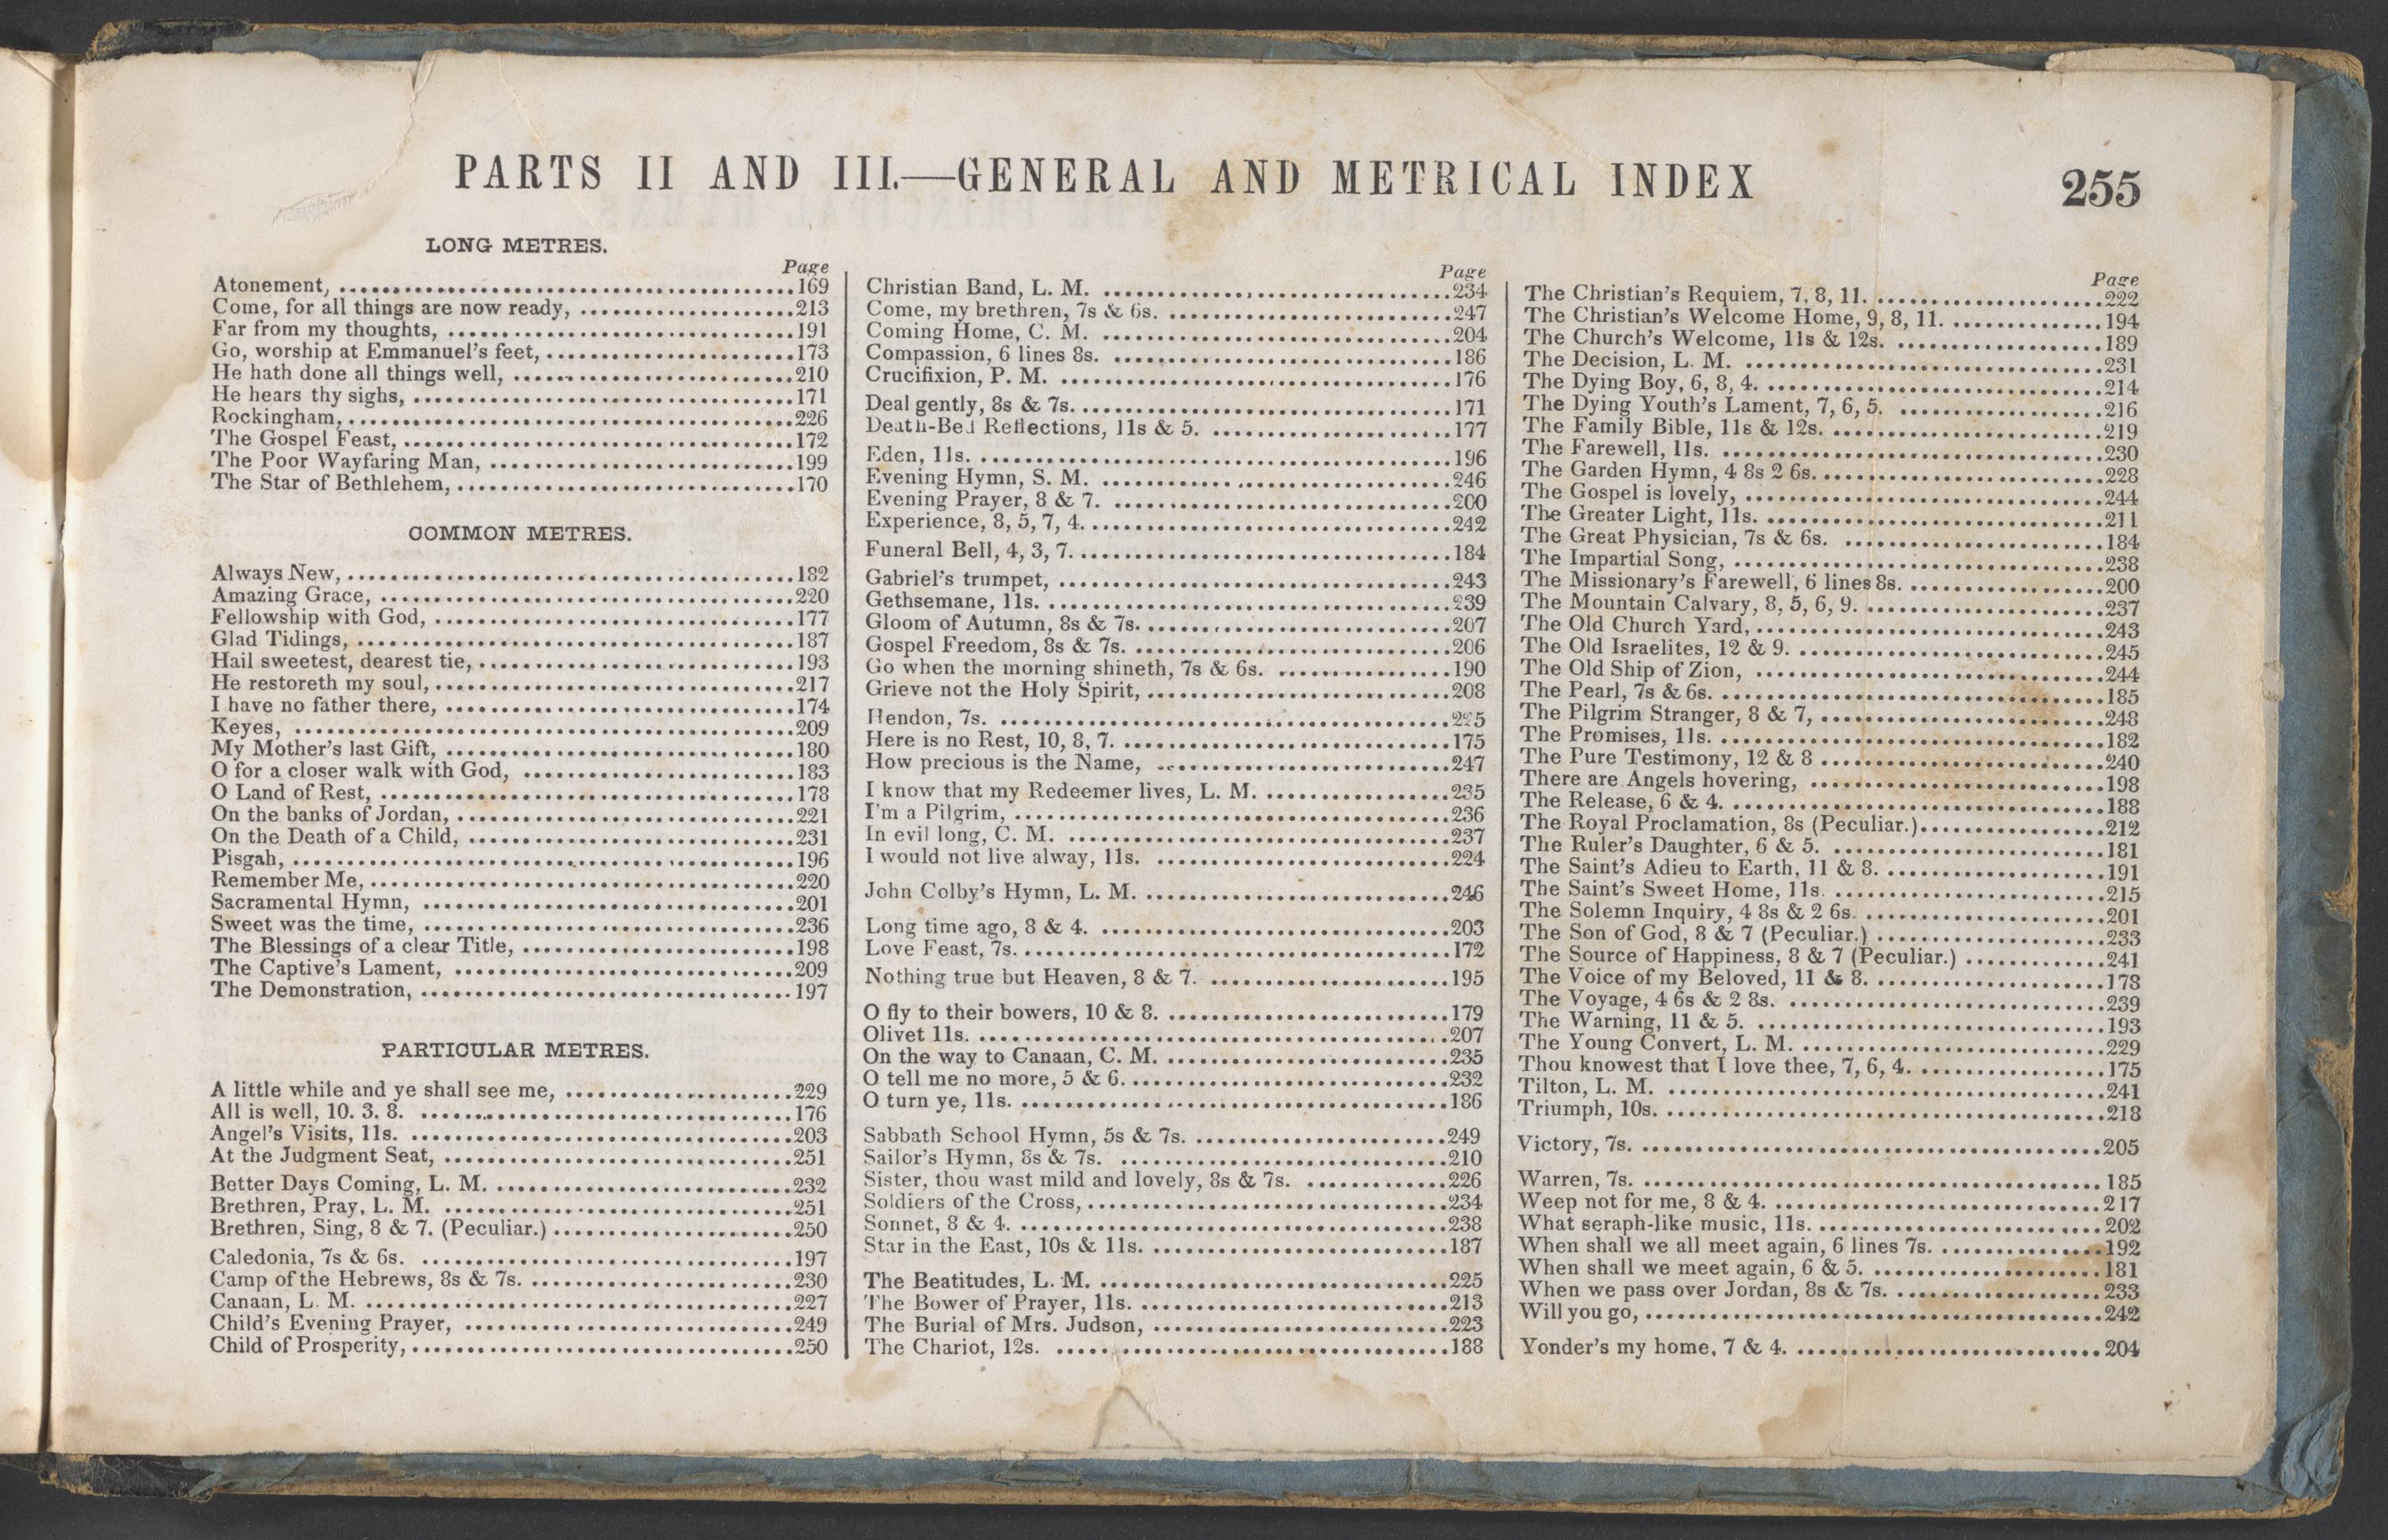 PARTS II AND III.—GENERAL AND METRICAL INDEX 255
LONG METRES.
Page
Atonement, 169
Come, for all things are now ready, 213
Far from my thoughts, 191
Go, worship at Emmanuel's feet, 173
He hath done all things well, 210
He hears thy sighs, 171
Rockingham, 226
The Gospel Feast, 172
The Poor Wayfaring Man, 199
The Star of Bethlehem, 170
COMMON METRES.
Always New, 182
Amazing Grace, 220
Fellowship with God, 177
Glad Tidings, 187
Hail sweetest, dearest tie, 193
He restoreth my soul, 217
I have no father there, 174
Keyes, 209
My Mother's last Gift, 180
O for a closer walk with God, 183
O Land of Rest, 178
On the banks of Jordan, 221
On the Death of a Child, 231
Pisgah, 196
Remember Me, 220
Sacramental Hymn, 201
Sweet was the time, 236
The Blessings of a clear Title, 198
The Captive's Lament, 209
The Demonstration, 197
PARTICULAR METRES.
A little while and ye shall see me, 229
All is well, 10. 3. 8. 176
Angel's Visits, 11s. 203
At the Judgment Seat, 251
Better Days Coming, L. M. 232
Brethren, Pray, L. M. 251
Brethren, Sing, 8 & 7. (Peculiar.) 250
Caledonia, 7s & 6s. 197
Camp of the Hebrews, 8s & 7s. 230
Canaan, L. M. 227
Child's Evening Prayer, 249
Child of Prosperity, 250
Page
Christian Band, L. M. 234
Come, my brethren, 7s & 6s. 247
Coming Home, C. M. 204
Compassion, 6 lines 8s. 186
Crucifixion, P. M. 176
Deal gently, 8s & 7s. 171
Death-Bed Reflections, 11s & 5. 177
Eden, 11s. 196
Evening Hymn, S. M. 246
Evening Prayer, 8 & 7. 200
Experience, 8, 5, 7, 4. 242
Funeral Bell, 4, 3, 7. 184
Gabriel's trumpet, 243
Gethsemane, 11s. 239
Gloom of Autumn, 8s & 7s. 207
Gospel Freedom, 8s & 7s. 206
Go when the morning shineth, 7s & 6s. 190
Grieve not the Holy Spirit, 208
Hendon, 7s. 225
Here is no Rest, 10, 8, 7. 175
How precious is the Name, 247
I know that my Redeemer lives, L. M. 235
I'm a Pilgrim, 236
In evil long, C. M. 237
I would not live alway, 11s. 224
John Colby's Hymn, L. M. 246
Long time ago, 8 & 4. 203
Love Feast, 7s. 172
Nothing true but Heaven, 8 & 7. 195
O fly to their bowers, 10 & 8. 179
Olivet 11s. 207
On the way to Canaan, C. M. 235
O tell me no more, 5 & 6. 232
O turn ye, 11s. 186
Sabbath School Hymn, 5s & 7s. 249
Sailor's Hymn, 8s & 7s. 210
Sister, thou wast mild and lovely, 8s & 7s. 226
Soldiers of the Cross, 234
Sonnet, 8 & 4. 238
Star in the East, 10s & 11s. 187
The Beatitudes, L. M. 225
The Bower of Prayer, 11s. 213
The Burial of Mrs. Judson, 223
The Chariot, 12s. 188
Page
The Christian's Requiem, 7, 8, 11. 222
The Christian's Welcome Home, 9, 8, 11. 194
The Church's Welcome, 11s & 12s. 189
The Decision, L. M. 231
The Dying Boy, 6, 8, 4. 214
The Dying Youth's Lament, 7, 6, 5. 216
The Family Bible, 11s & 12s. 219
The Farewell, 11s. 230
The Garden Hymn, 4 8s 2 6s. 228
The Gospel is lovely, 244
The Greater Light, 11s. 211
The Great Physician, 7s & 6s. 184
The Impartial Song, 238
The Missionary's Farewell, 6 lines 8s. 200
The Mountain Calvary, 8, 5, 6, 9. 237
The Old Church Yard, 243
The Old Israelites, 12 & 9. 245
The Old Ship of Zion, 244
The Pearl, 7s & 6s. 185
The Pilgrim Stranger, 8 & 7, 248
The Promises, 11s. 182
The Pure Testimony, 12 & 8 240
There are Angels hovering, 198
The Release, 6 & 4. 188
The Royal Proclamation, 8s (Peculiar.) 212
The Ruler's Daughter, 6 & 5. 181
The Saint's Adieu to Earth, 11 & 8. 191
The Saint's Sweet Home, 11s. 215
The Solemn Inquiry, 4 8s & 2 6s. 201
The Son of God, 8 & 7 (Peculiar.) 233
The Source of Happiness, 8 & 7 (Peculiar.) 241
The Voice of my Beloved, 11 & 8. 178
The Voyage, 4 6s & 2 8s. 239
The Warning, 11 & 5. 193
The Young Convert, L. M. 229
Thou knowest that I love thee, 7, 6, 4. 175
Tilton, L. M. 241
Triumph, 10s. 218
Victory, 7s. 205
Warren, 7s. 185
Weep not for me, 8 & 4. 217
What seraph-like music, 11s. 202
When shall we all meet again, 6 lines 7s. 192
When shall we meet again, 6 & 5. 181
When we pass over Jordan, 8s & 7s. 233
Will you go, 242
Yonder's my home, 7 & 4. 204